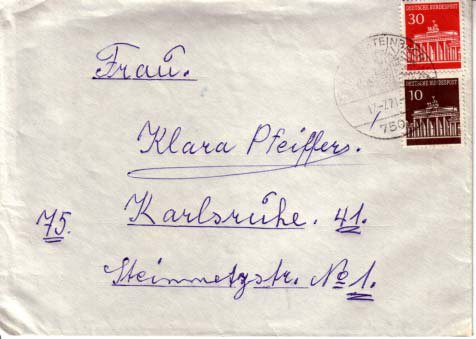 30
DEUTSCHE BUNDESPOST
10
DEUTSCHE BUNDESPOST
Frau.
Klara Pfeiffers.
75. Karlsruhe. 41.
Steinmetzstr. No 1.